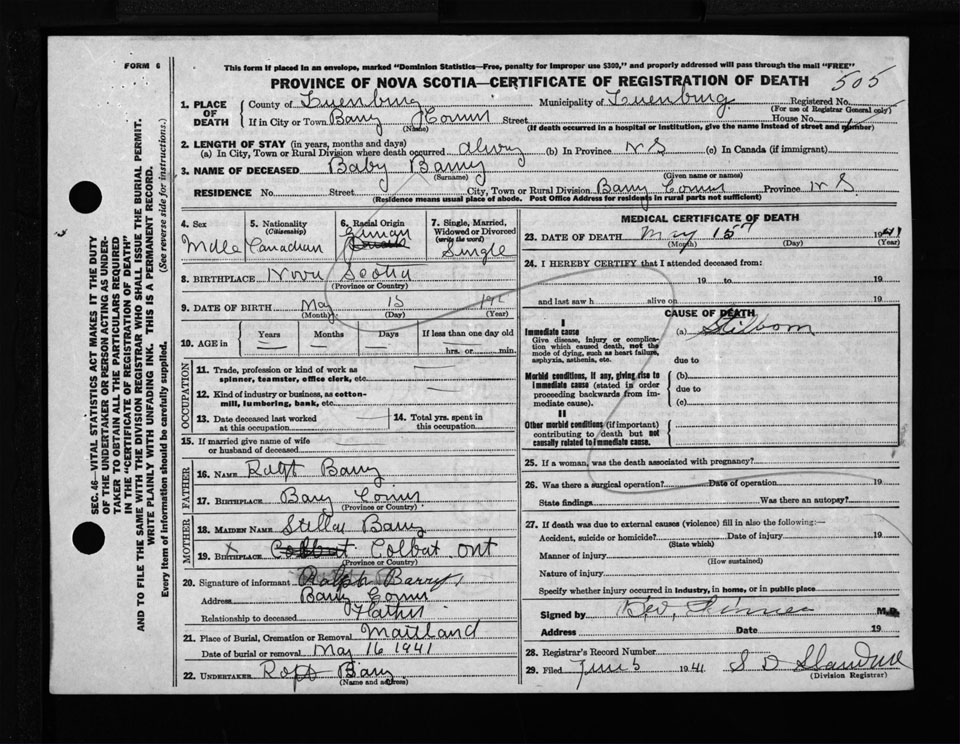 FORM 6
This form if placed in an envelope, marked "Dominion Statistics—Free, penalty for improper use $300," and properly addressed will pass through the mail "FREE"
PROVINCE OF NOVA SCOTIA—CERTIFICATE OF REGISTRATION OF DEATH
505
1. PLACE OF DEATH
County of Luenburg Municipality of Luenburg Registered No.
(For use of Registrar General only)
If in City or Town Barry Corner Street House No.
(Name) (If death occurred in a hospital or institution, give the name instead of street and number)
2. LENGTH OF STAY (in years, months and days)
(a) In City, Town or Rural Division where death occurred (b) In Province N S (c) In Canada (if immigrant)
3. NAME OF DECEASED Baby Barry
(Surname) (Given name or names)
RESIDENCE No. Street City, Town or Rural Division Barry Corner Province N S
(Residence means usual place of abode. Post Office Address for residents in rural parts not sufficient)
4. Sex Male
5. Nationality (Citizenship) Canadian
6. Racial Origin German
7. Single, Married, Widowed or Divorced (write the word) Single
8. BIRTHPLACE Nova Scotia
(Province or Country)
9. DATE OF BIRTH May 15 194
(Month) (Day) (Year)
10. AGE in Years Months Days If less than one day old
hrs. or min.
OCCUPATION
11. Trade, profession or kind of work as spinner, teamster, office clerk, etc.
12. Kind of industry or business, as cotton-mill, lumbering, bank, etc.
13. Date deceased last worked at this occupation
14. Total yrs. spent in this occupation
15. If married give name of wife or husband of deceased
FATHER
16. NAME Barry
17. BIRTHPLACE Barry Corner
(Province or Country)
MOTHER
18. MAIDEN NAME Stella Barry
19. BIRTHPLACE Colbat Ont
(Province or Country)
20. Signature of informant Ralph Barry
Address Barry Corner
Relationship to deceased Father
21. Place of Burial, Cremation or Removal Maitland
Date of burial or removal May 16 1941
22. UNDERTAKER Barry
(Name and address)
MEDICAL CERTIFICATE OF DEATH
23. DATE OF DEATH May 15 1941
(Month) (Day) (Year)
24. I HEREBY CERTIFY that I attended deceased from:
19 to 19
and last saw h alive on 19
CAUSE OF DEATH
I
Immediate cause (a) Stilborn
Give disease, injury or complication which caused death, not the mode of dying, such as heart failure, asphyxia, asthenia, etc.
due to
Morbid conditions, if any, giving rise to immediate cause (stated in order proceeding backwards from immediate cause).
(b)
due to
(c)
II
Other morbid conditions (if important) contributing to death but not causally related to immediate cause.
25. If a woman, was the death associated with pregnancy?
26. Was there a surgical operation? Date of operation 19
State findings Was there an autopsy?
27. If death was due to external causes (violence) fill in also the following:—
Accident, suicide or homicide? Date of injury 19
(State which)
Manner of injury
(How sustained)
Nature of injury
Specify whether injury occurred in industry, in home, or in public place
Signed by M.D.
Address Date 19
28. Registrar's Record Number
29. Filed June 5 1941 S D
(Division Registrar)
SEC. 46—VITAL STATISTICS ACT MAKES IT THE DUTY
OF THE UNDERTAKER OR PERSON ACTING AS UNDER-
TAKER TO OBTAIN ALL THE PARTICULARS REQUIRED
IN THE "CERTIFICATE OF REGISTRATION OF DEATH"
AND TO FILE THE SAME WITH THE DIVISION REGISTRAR WHO SHALL ISSUE THE BURIAL PERMIT.
WRITE PLAINLY WITH UNFADING INK. THIS IS A PERMANENT RECORD.
Every item of information should be carefully supplied. (See reverse side for instructions.)